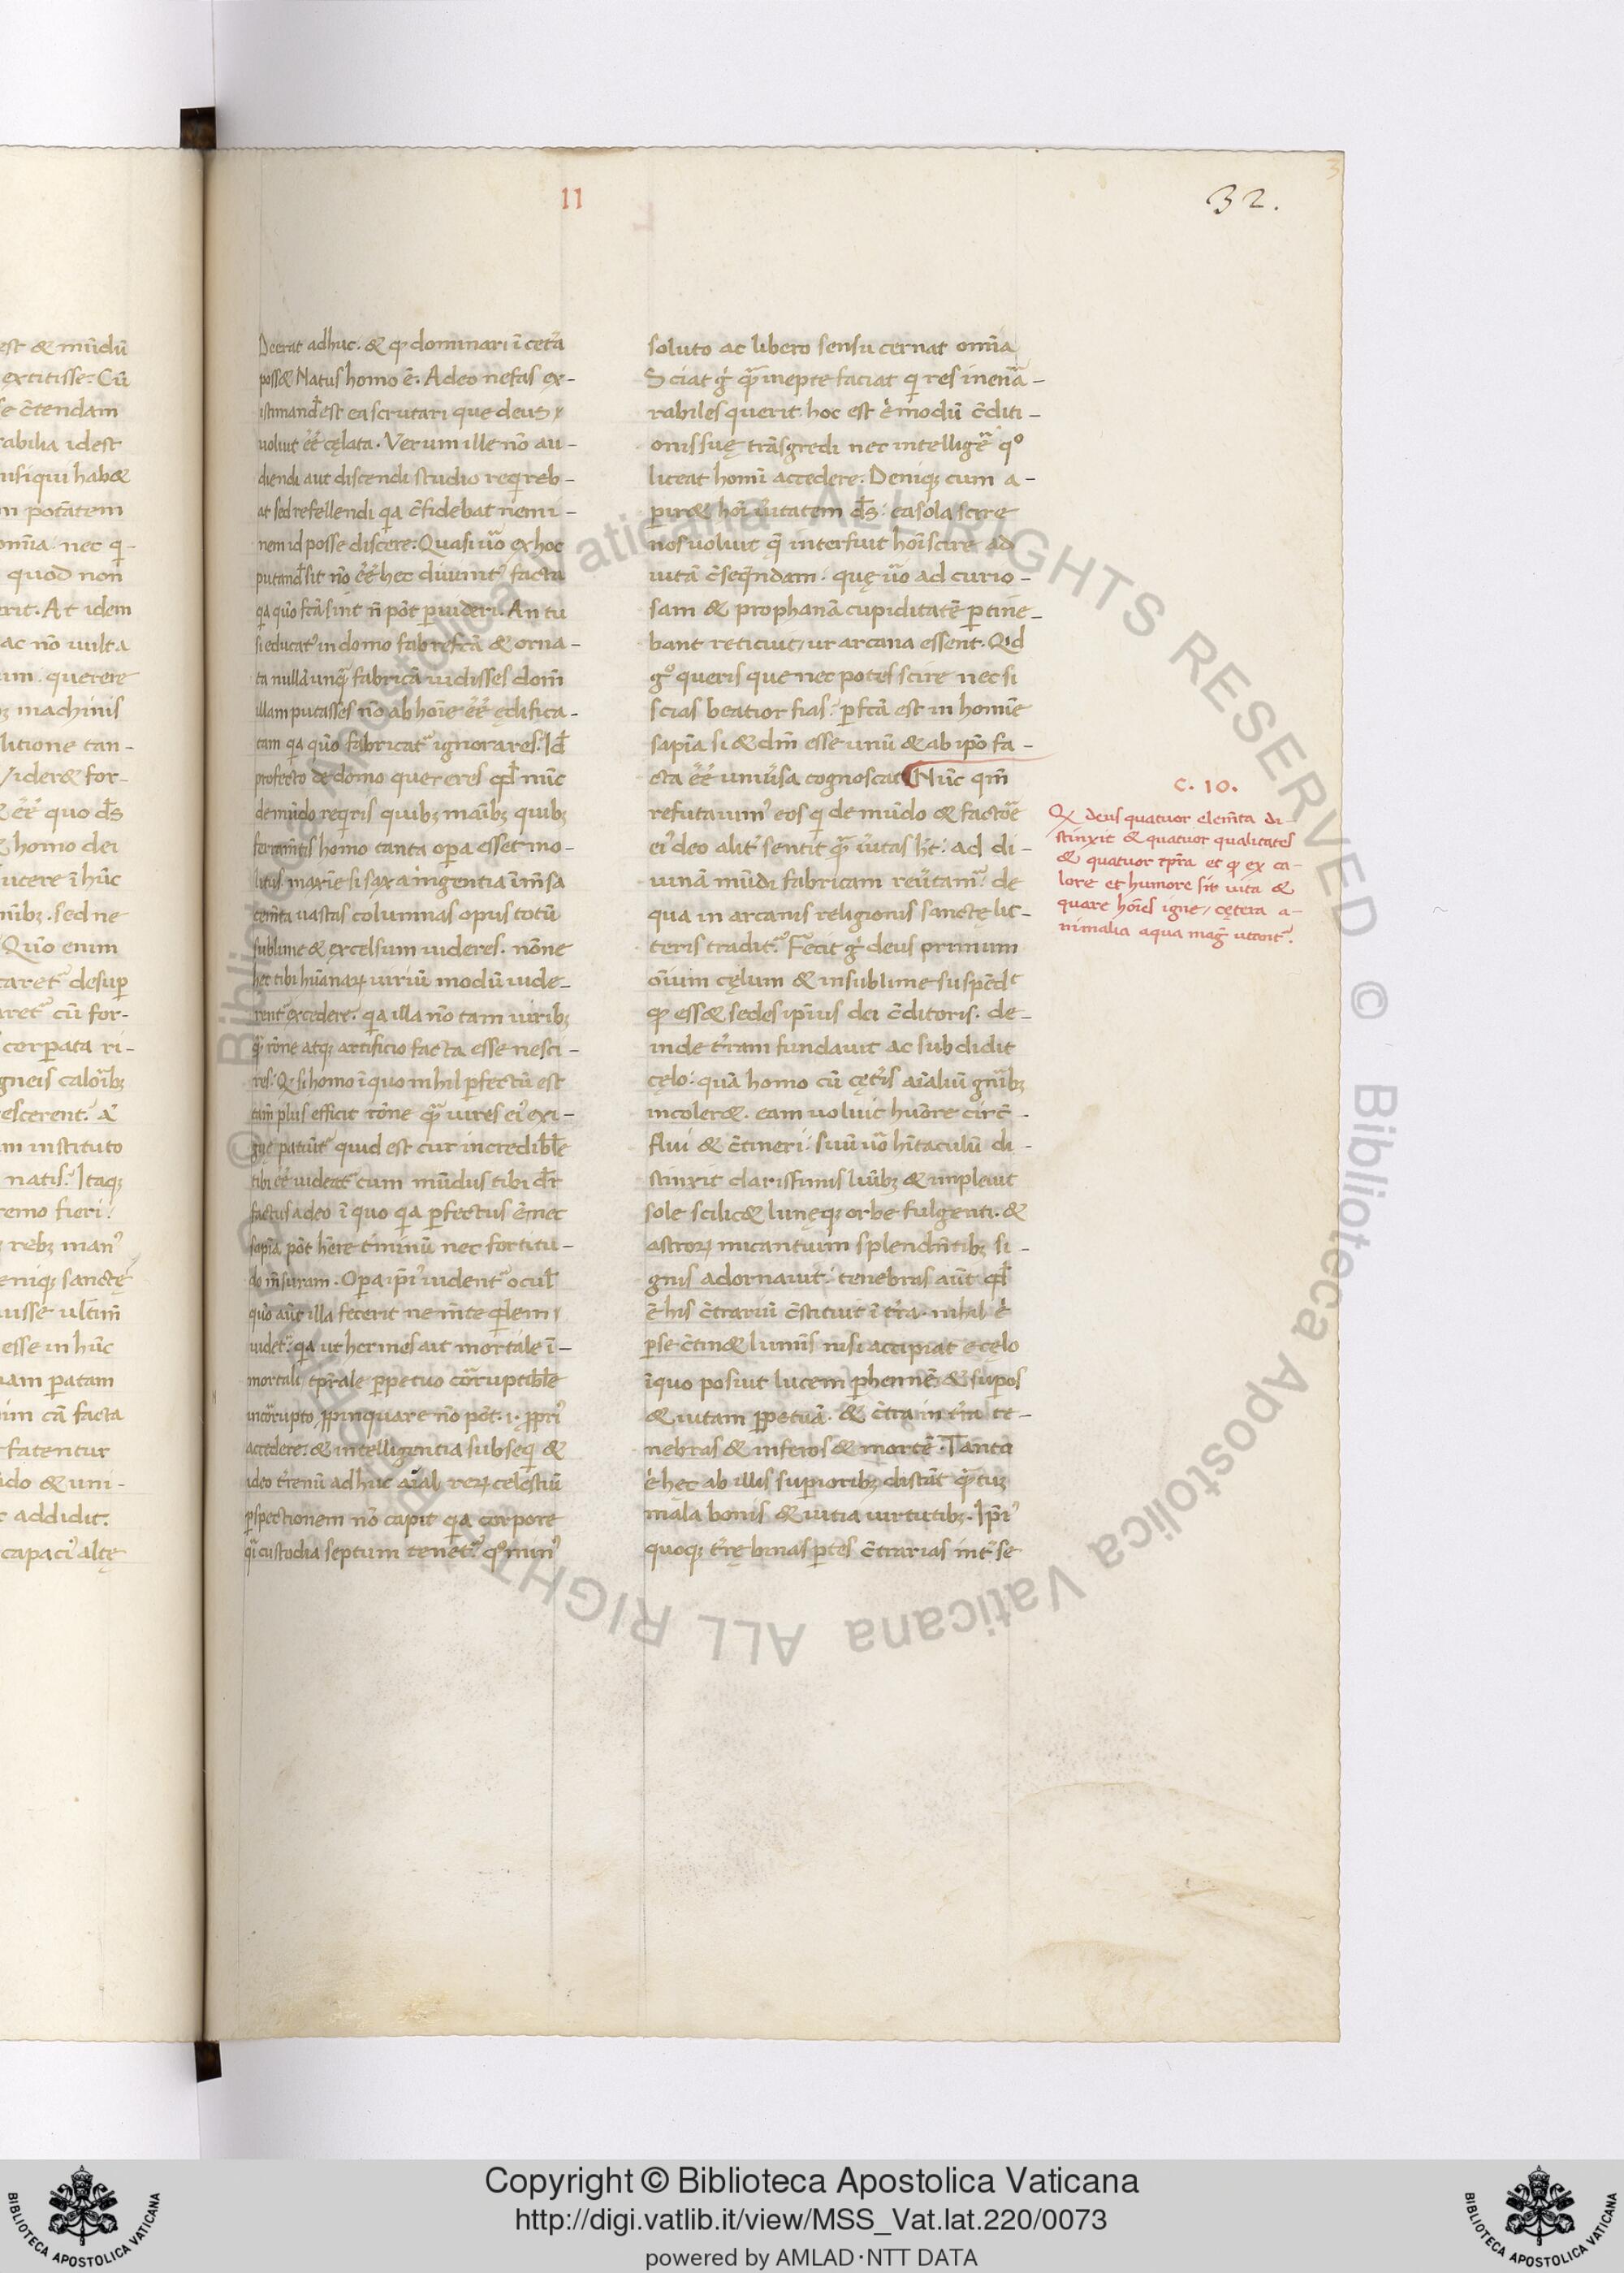 II
32.
est & mūdū
extitisse. Cū
se c̄tendam
rabilia idest
nisi qui hab&
m potātem
omīa nec q̄-
quod non
erit. At idem
ac nō uult a
um. querere
machinis
litione tan-
uider& for-
ee quo ds̄
& homo dei
ucere ī hūc
nībꝫ. sed ne
Quō enim
caret᷑ desuꝑ
aret᷑ cū for-
corꝑata ri-
gneis calorībꝫ
escerent. A
m instituto
natis. Itaqꝫ
remo fieri
rebꝫ man᾽
eniqꝫ sanctę
uisse ultim̄
esse in hūc
nam ꝑatam
im cā facta
fatentur
ūdo & uni-
addidit.
capaci᾽ altę
Deerat adhuc. & ꝙ dominari ī ceta᷑
poss& Natus homo ē. Adeo nefas ex-
istimand̄ est ea scrutari que deus/
uoluit eē cęlata. Verum ille nō au-
diendi aut discendi studio req̄reb-
at sed refellendi q̄a c̄fidebat nemi-
nem id posse discere. Quasi uo᷑ ex hoc
putand̄ sit nō eē hec diuinit᾽ facta
q̄a quō fc̄a sint n̄ pōt ꝑuideri. An tu
si educat᾽ in domo fabrefc̄a & orna-
ta nullā unq̄ fabricā uidisses dom̄
illam putasses nō ab hoīe eē ędifica-
tam q̄a quō fabricat᷑ ignorares. Id̄
profecto de domo quereres qd̄ nūc
de mūdo req̄ris quibꝫ manībꝫ quibꝫ
ferram̄tis homo tanta oꝑa esset mo-
litus. maxīe si saxa ingentia īm̄sa
cem̄ta uastas columnas opus totū
sublime & excelsum uideres. nōne
hec tibi hūanaꝝ uiriū modū uide-
rent᷑ excedere. q̄a illa nō tam uiribꝫ
q̄ rōne atqꝫ artificio facta esse nesci-
res. Qꝫ si homo ī quo nihil ꝑfectū est
tam̄ plus efficit rōne q̄ uires ei᾽ exi-
gue patiūt᷑ quid est cur incredibīle
tibi eē uideat᷑ cum mūdus tibi dr̄
factus a deo ī quo q̄a ꝑfectus ē nec
sapīa pōt hēre t᷑minū nec fortitu-
do m̄suram. Oꝑa ip̄i᾽ uident᷑ ocul̄
quō aūt illa fecerit ne m̄te qd̄em/
uidet᷑. q̄a ut hermes ait mortale ī-
mortali/ tꝑrale ꝑpetuo cor᷑ruptibīle
incor᷑rupto ꝓpinquare nō pōt. i. ꝓpri᾽
accedere. & intelligentia subseq̄ &
ideo t᷑renū adhuc aīal reꝝ celestiū
ꝑspectionem nō capit q̄a corpore
q̄i custodia septum tenet᷑. qº min᾽
soluto ac libero sensu cernat omīa
Sciat g᷑ q̄ inepte faciat q̄ res inena᷑-
rabiles querit. hoc est ē modū c̄diti-
onis suę trāsgredi nec intellige᷑ qº
liceat homī accedere. Deniqꝫ cum a-
ꝑir& hoī u᷑itatem ds̄. ea sola scire
nos uoluit q̄ interfuit hoīs scire ad
uitā c̄seq̄ndam. quę uo᷑ ad curio-
sam & prophanā cupiditatē ꝑtine-
bant reticuit/ ur arcana essent. Qd
gº queris que nec potes scire nec si
scias beatior fias. ꝑfc̄a est in homīe
sapīa si & dm̄ esse unū & ab ip̄o fa-
cta eē uniu᷑sa cognoscat. Nūc qm̄
refutauim᾽ eos q̄ de mūdo & factoē
ei᾽ deo alit᷑ sentit q̄ u᷑itas h̄t. ad di-
uinā mūdi fabricam reu᷑tam᷑. de
qua in arcanis religionis sanctę lit-
teris tradit᷑. Fecit g᷑ deus primum
oīum cęlum & in sublime suspēdᵗ
ꝙ ess& sedes ip̄ius dei c̄ditoris. de-
inde t᷑ram fundauit ac subdidit
cęlo. quā homo cū cęt᷑is aīaliū gn᷑ibꝫ
incoler&. eam uoluit huōre circ̄-
flui & c̄tineri. suū uo᷑ hītaculū di-
stinxit clarissimis lum̄ibꝫ & impleuit
sole scilic& lunęqꝫ orbe fulgenti. &
astroꝝ micantium splendn̄tibꝫ si-
gnis adornauit. tenebras aūt qd̄
ē his c̄trariū c̄stituit ī t᷑ra. nihil ē
ꝑ se c̄tin& lumīs nisi accipiat e cęlo
ī quo posuit lucem ꝑhennē & suꝑos
& uitam ꝑpetuā. & c̄tra in t᷑ra te-
nebras & inferos & mortē. Tanto
ē hec ab illis superioribꝫ distāt q̄tuꝫ
mala bonis & uitia uirtutibꝫ. Ip̄i᾽
quoqꝫ t᷑rę binas ꝑtes c̄trarias int᷑ se
c. 10.
Qꝫ deus quatuor elem̄ta di-
stinxit & quatuor qualitates
& quatuor tꝑra et ꝙ ex ca-
lore et humore sit uita &
quare hoīes igne/ cętera a-
nimalia aqua mag᷑ utant᷑.
Copyright © Biblioteca Apostolica Vaticana
http://digi.vatlib.it/view/MSS_Vat.lat.220/0073
powered by AMLAD·NTT DATA
BIBLIOTECA APOSTOLICA VATICANA
BIBLIOTECA APOSTOLICA VATICANA
© Biblioteca Apostolica Vaticana ALL RIGHTS RESERVED © Biblioteca Apostolica Vaticana ALL RIGHTS RESERVED